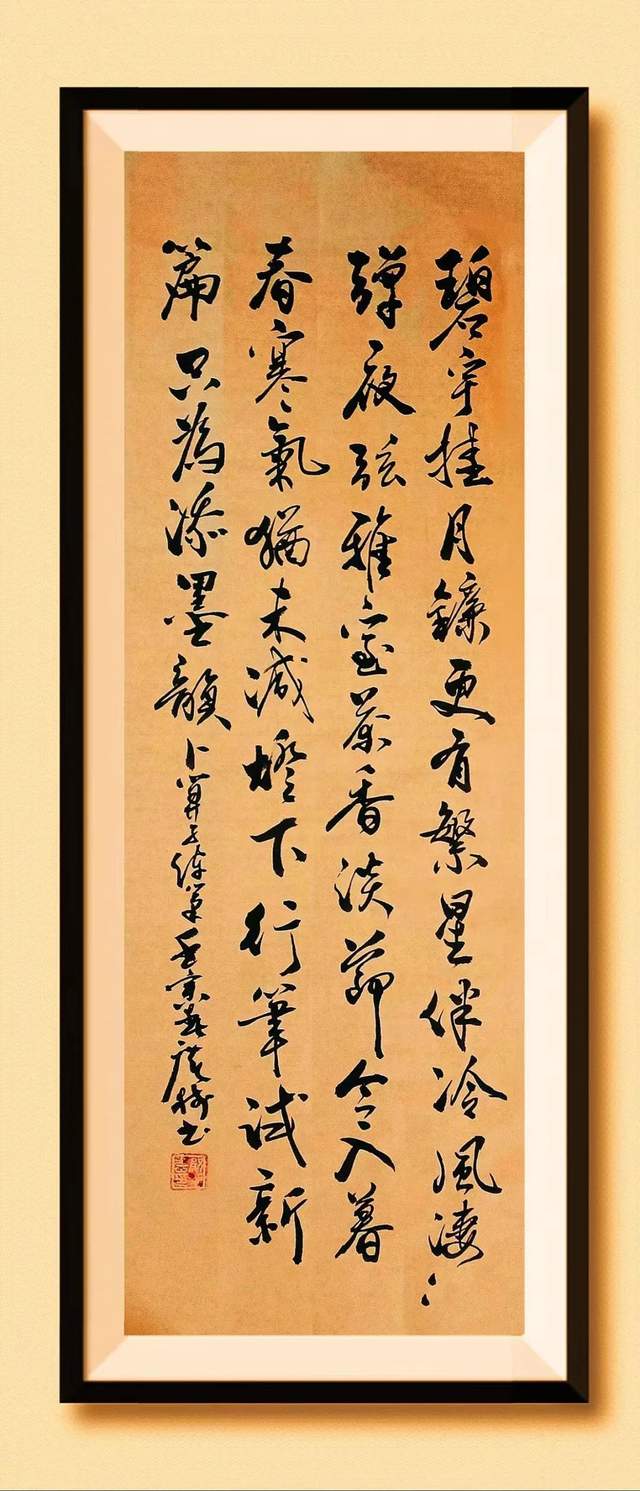 碧宇挂月鐮更有繁星伴冷風淒〻
彈夜弦雅室茶香淡節令入暮
春寒氣猶未減燈下行筆試新
篇只為添墨韻 卜算子 书